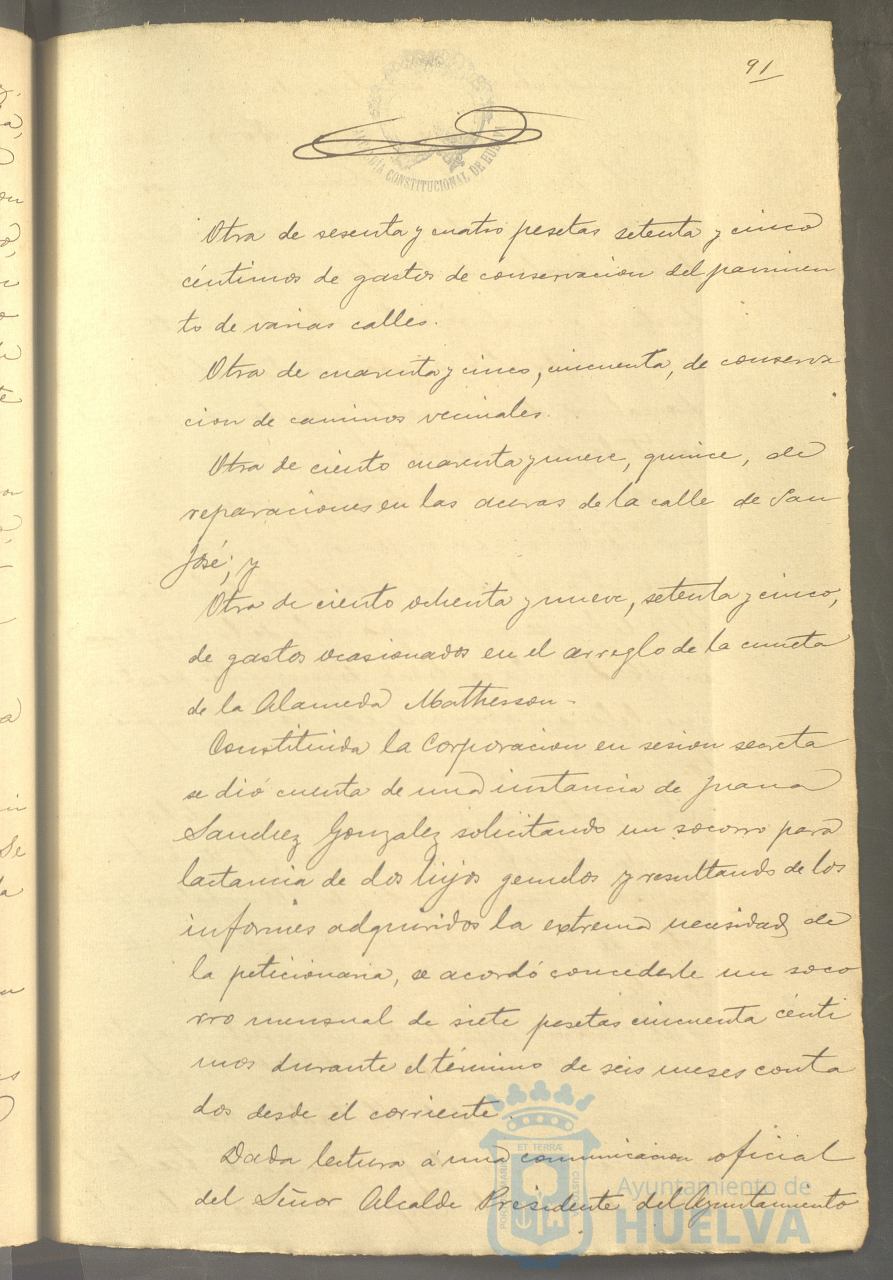 91
ALCALDIA CONSTITUCIONAL DE HUELVA
Otra de sesenta y cuatro pesetas setenta y cinco
céntimos de gastos de conservacion del pavimen
to de varias calles.
Otra de cuarenta y cinco, cincuenta, de conserva
cion de caminos vecinales.
Otra de ciento cuarenta y nueve, quince, de
reparaciones en las aceras de la calle de San
José; y
Otra de ciento ochenta y nueve, setenta y cinco,
de gastos ocasionados en el arreglo de la cuneta
de la Alameda Mathesson.
Constituida la Corporacion en sesion secreta
se dió cuenta de una instancia de Juana
Sanchez Gonzalez solicitando un socorro para
lactancia de dos hijos gemelos y resultando de los
informes adquiridos la extrema necesidad de
la peticionaria, se acordó concederle un soco
rro mensual de siete pesetas cincuenta cénti
mos durante el término de seis meses conta
dos desde el corriente.
Dada lectura á una comunicacion oficial
del Señor Alcalde Presidente del Ayuntamiento
PORTUS MARIS ET TERRÆ CUSTODIA
Ayuntamiento de
HUELVA